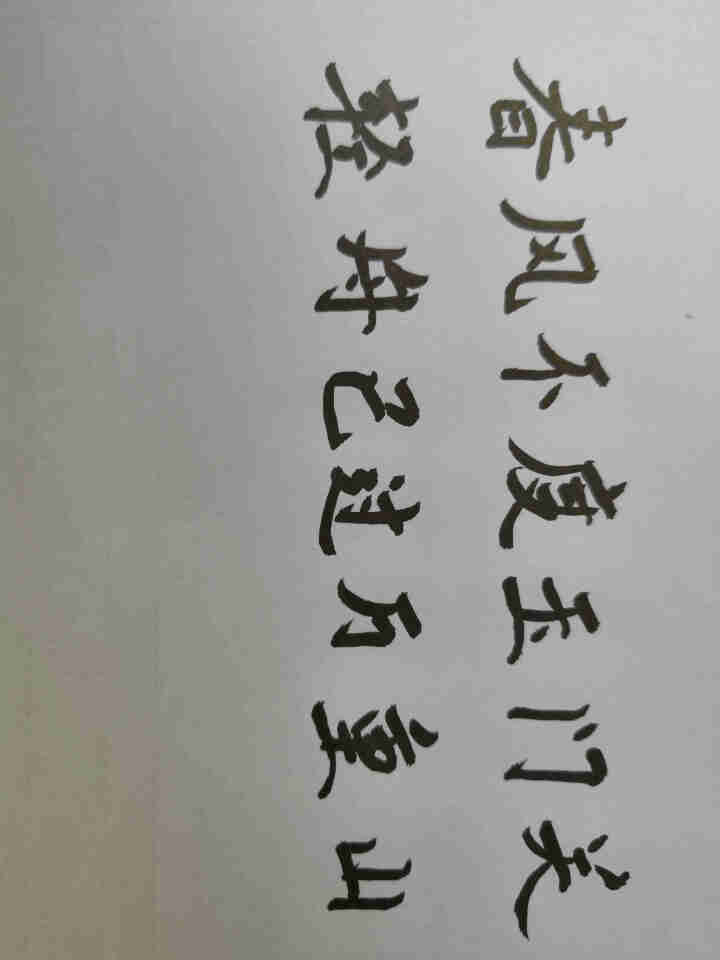 春风不度玉门关
轻舟已过万重山